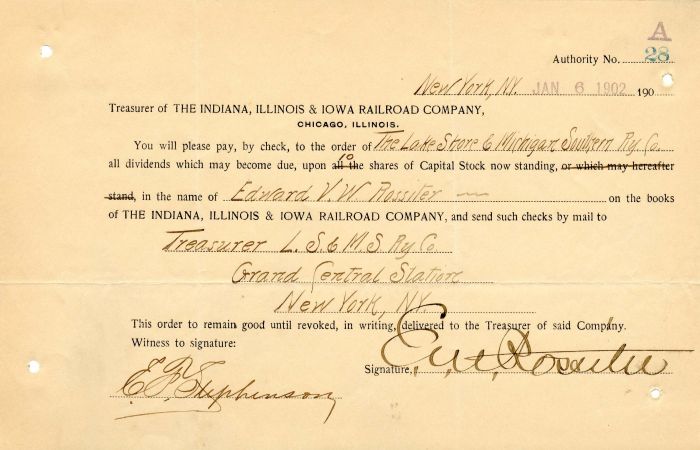 A
Authority No. 28
New York, N.Y. JAN 6 1902 190
Treasurer of THE INDIANA, ILLINOIS & IOWA RAILROAD COMPANY,
CHICAGO, ILLINOIS.
You will please pay, by check, to the order of The Lake Shore & Michigan Southern Ry. Co.
all dividends which may become due, upon all the 10 shares of Capital Stock now standing, or which may hereafter
stand, in the name of Edward V. W. Rossiter on the books
of THE INDIANA, ILLINOIS & IOWA RAILROAD COMPANY, and send such checks by mail to
Treasurer L. S. & M. S. Ry. Co.
Grand Central Station
New York, N.Y.
This order to remain good until revoked, in writing, delivered to the Treasurer of said Company.
Witness to signature:
Signature, E. V. W. Rossiter
E. F. Stephenson